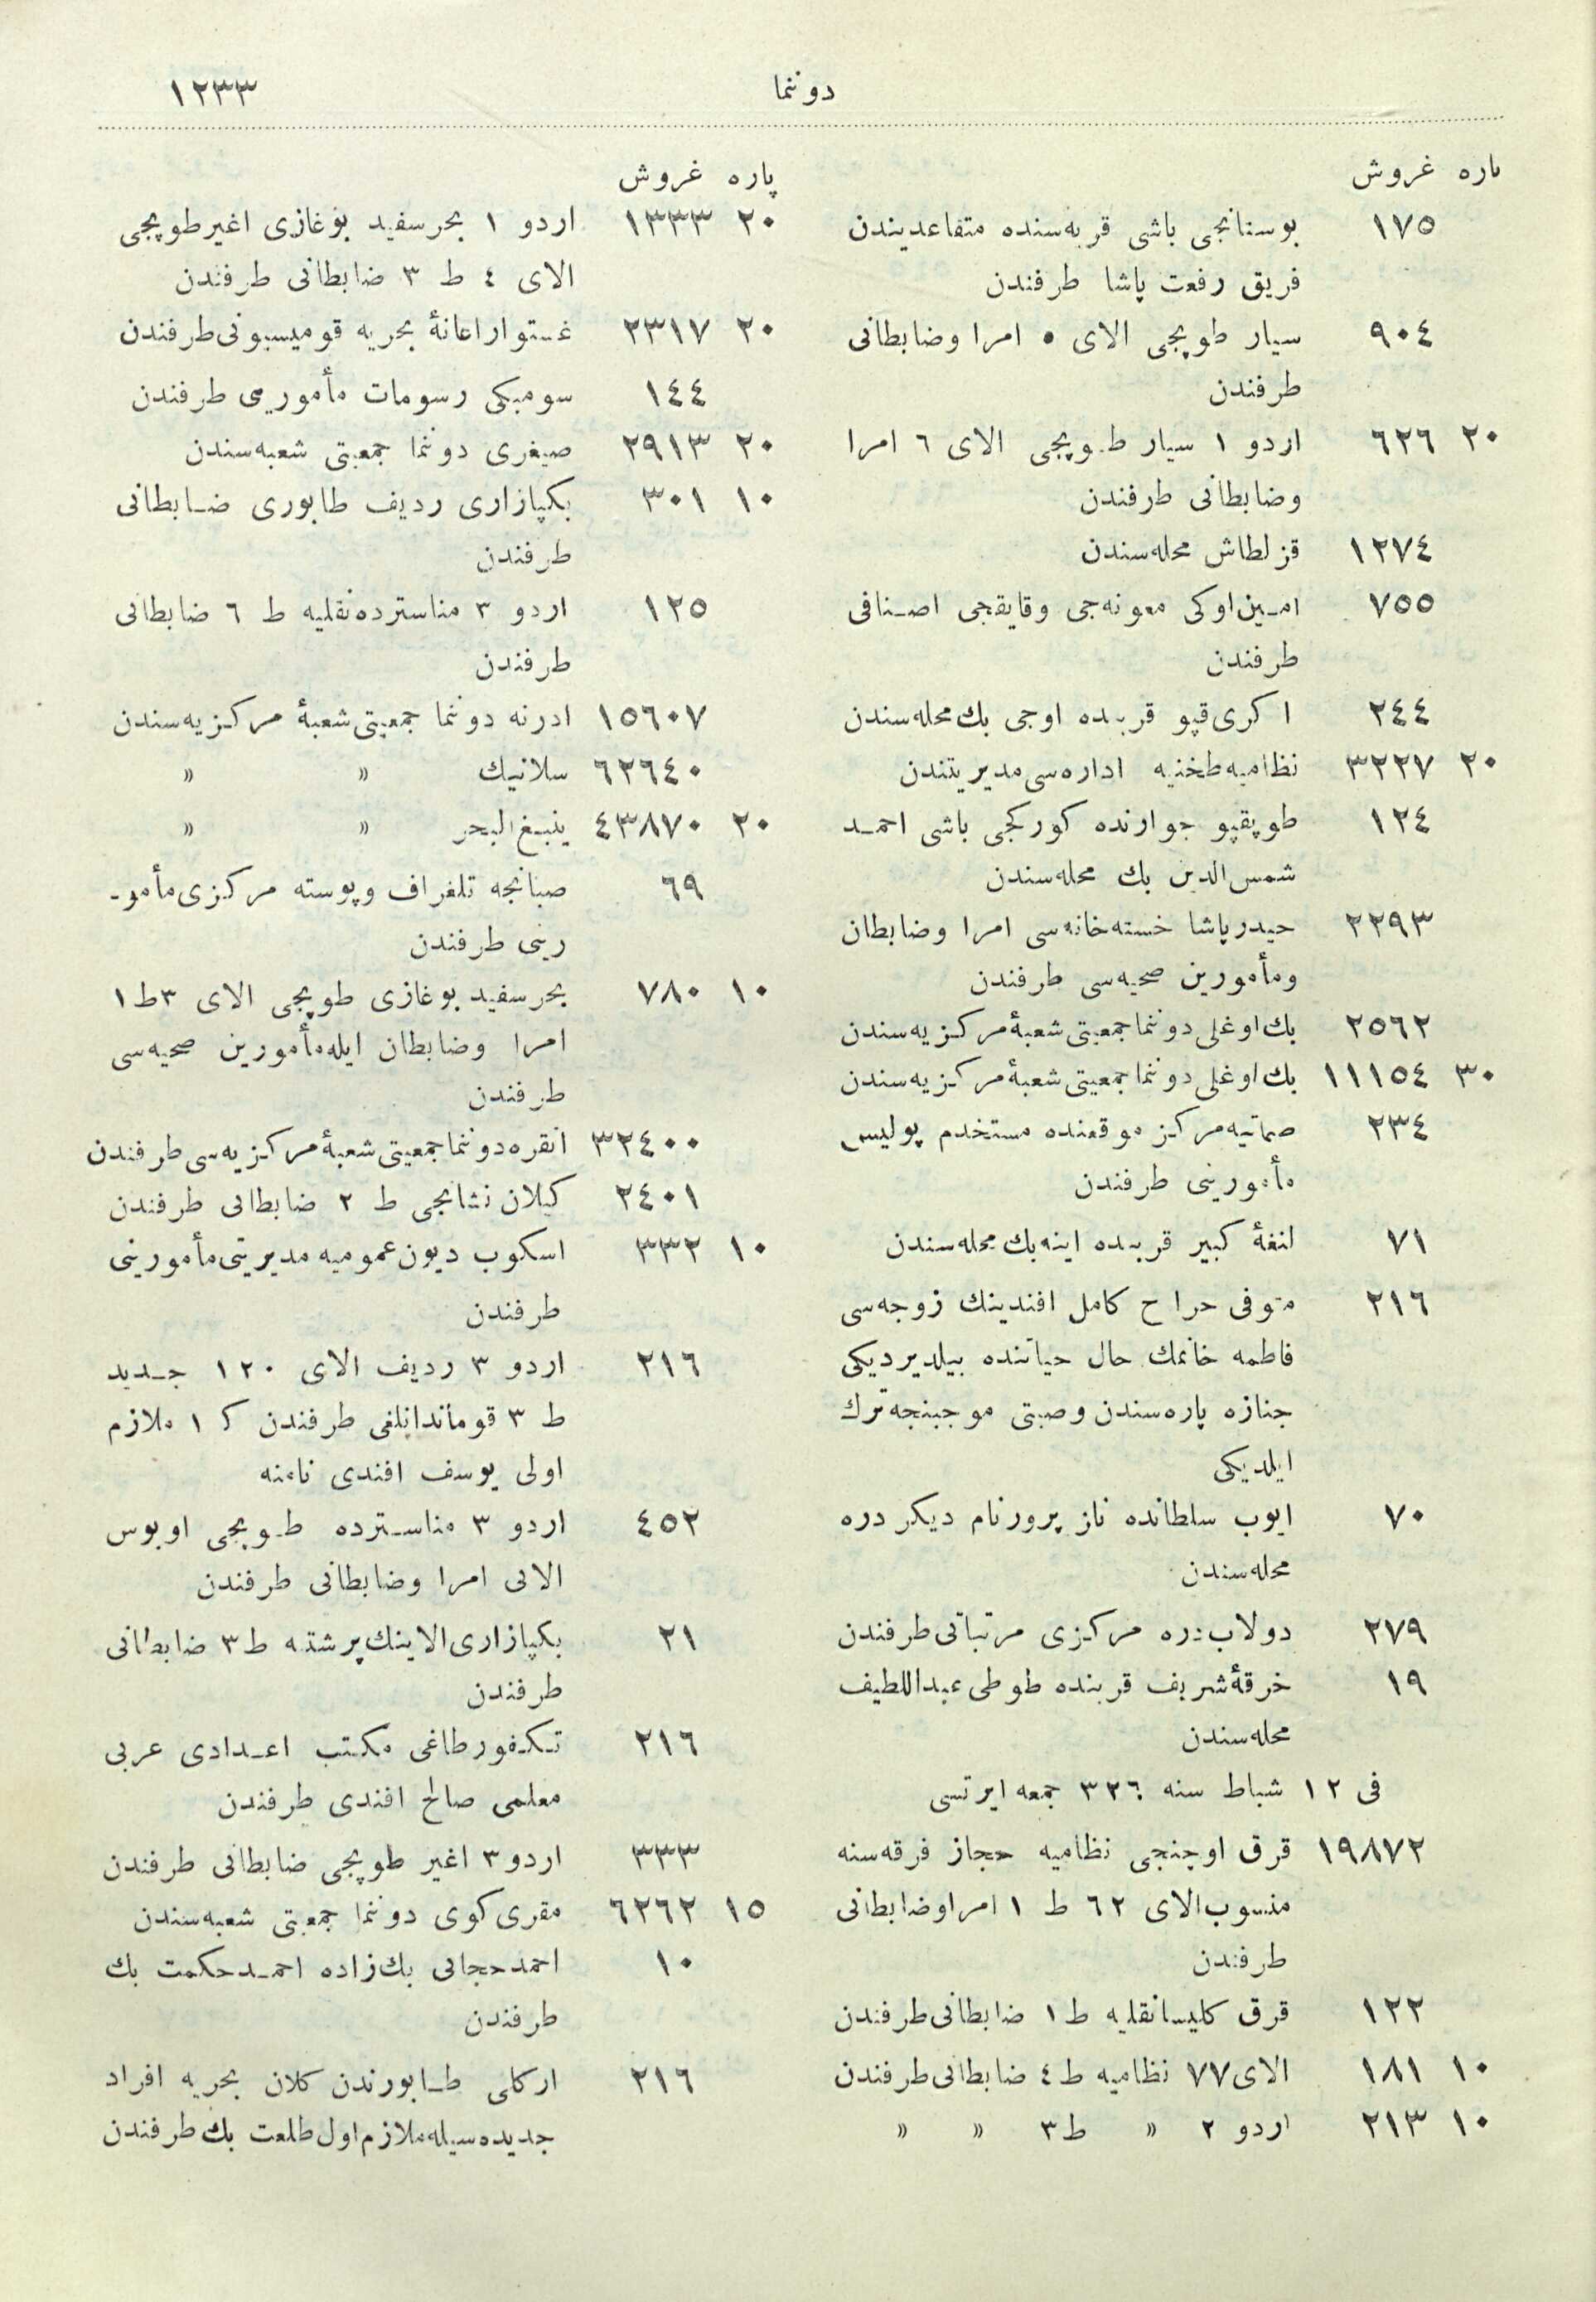 دوننما
١٢٣٣
پاره غروش
١٧٥ بوستانجی باشی قربه‌سنده متقاعدیندن
فریق رفعت پاشا طرفندن
٩٠٤ سیار طوپجی الای ٥ امرا وضابطانی
طرفندن
٢٠ ٦٢٦ اردو ١ سیار طوپجی الای ٦ امرا
وضابطانی طرفندن
١٢٧٤ قزلطاش محله‌سندن
٧٥٥ امین‌اوکی معونه‌جی وقایقجی اصنافی
طرفندن
٢٤٤ اکری‌قپو قربنده اوجی بك محله‌سندن
٢٠ ٣٢٢٧ نظامیه‌طخنیه اداره‌سی‌مدیریتندن
١٢٤ طوپقپو جوارنده کورکجی باشی احمد
شمس‌الدین بك محله‌سندن
٢٢٩٣ حیدرپاشا خسته‌خانه‌سی امرا وضابطان
ومأمورین صحیه‌سی طرفندن
٢٥٦٢ بك‌اوغلی دوننما جمعیتی شعبۀ مرکزیه‌سندن
٣٠ ١١١٥٤ بك‌اوغلی دوننما جمعیتی شعبۀ مرکزیه‌سندن
٢٣٤ صماتیه‌مرکز موقعنده مستخدم پولیس
مأمورینی طرفندن
٧١ لنغۀ کبیر قربنده اینه‌بك محله‌سندن
٢١٦ متوفی جراح کامل افندینك زوجه‌سی
فاطمه خانمك حال حیاتنده بیلدیردیکی
جنازه پاره‌سندن وصیتی موجبنجه ترك
ایلدیکی
٧٠ ایوب سلطانده ناز پرورنام دیکر دره
محله‌سندن
٢٧٩ دولاب‌دره مرکزی مرتباتی طرفندن
١٩ خرقۀ‌شریف قربنده طوطی عبداللطیف
محله‌سندن
فی ١٢ شباط سنه ٣٢٦ جمعه ایرتسی
١٩٨٧٢ قرق اوچنجی نظامیه حجاز فرقه‌سنه
منسوب‌الای ٦٢ ط ١ امراوضابطانی
طرفندن
١٢٢ قرق کلیسانقلیه ط ١ ضابطانی‌طرفندن
١٠ ١٨١ الای ٧٧ نظامیه ط ٤ ضابطانی‌طرفندن
١٠ ٢١٣ اردو ٢ « ط ٣ « «
پاره غروش
٢٠ ١٣٣٣ اردو ١ بحرسفید بوغازی اغیرطوپجی
الای ٤ ط ٣ ضابطانی طرفندن
٢٠ ٢٣١٧ غستوار اعانۀ بحریه قومیسیونی‌طرفندن
١٤٤ سومبکی رسومات مأموریمی طرفندن
٢٠ ٢٩١٣ صیغری دوننما جمعیتی شعبه‌سندن
١٠ ٣٠١ بکپازاری ردیف طابوری ضابطانی
طرفندن
١٢٥ اردو ٣ مناسترده‌نقلیه ط ٦ ضابطانی
طرفندن
١٥٦٠٧ ادرنه دوننما جمعیتی شعبۀ مرکزیه‌سندن
٦٢٦٤٠ سلانیك « «
٢٠ ٤٣٨٧٠ ینبغ‌البحر « «
٦٩ صبانجه تلغراف وپوسته مرکزی‌مأمو-
رینی طرفندن
١٠ ٧٨٠ بحرسفید بوغازی طوپجی الای ٣ ط ١
امرا وضابطان ایله‌مأمورین صحیه‌سی
طرفندن
٣٢٤٠٠ انقره دوننما جمعیتی شعبۀ مرکزیه‌سی طرفندن
٢٤٠١ کیلان نشانجی ط ٢ ضابطانی طرفندن
١٠ ٣٣٢ اسکوب دیون‌عمومیه مدیریتی‌مأمورینی
طرفندن
٢١٦ اردو ٣ ردیف الای ١٢٠ جدید
ط ٣ قومأندانلغی طرفندن ك ١ ملازم
اولی یوسف افندی نامنه
٤٥٢ اردو ٣ مناسترده طوپجی اوبوس
الانی امرا وضابطانی طرفندن
٢١ بکپازاری‌الاینك‌پرشتنه ط ٣ ضابطانی
طرفندن
٢١٦ تکفورطاغی مکتب اعدادی عربی
معلمی صالح افندی طرفندن
٣٣٣ اردو ٣ اغیر طوپجی ضابطانی طرفندن
١٥ ٦٢٦٢ مقری‌کوی دوننما جمعیتی شعبه‌سندن
١٠ احمدحجانی بك‌زاده احمدحکمت بك
طرفندن
٢١٦ ارکلی طابورندن کلان بحریه افراد
جدیده‌سیله‌ملازم‌اول‌طلعت بك طرفندن